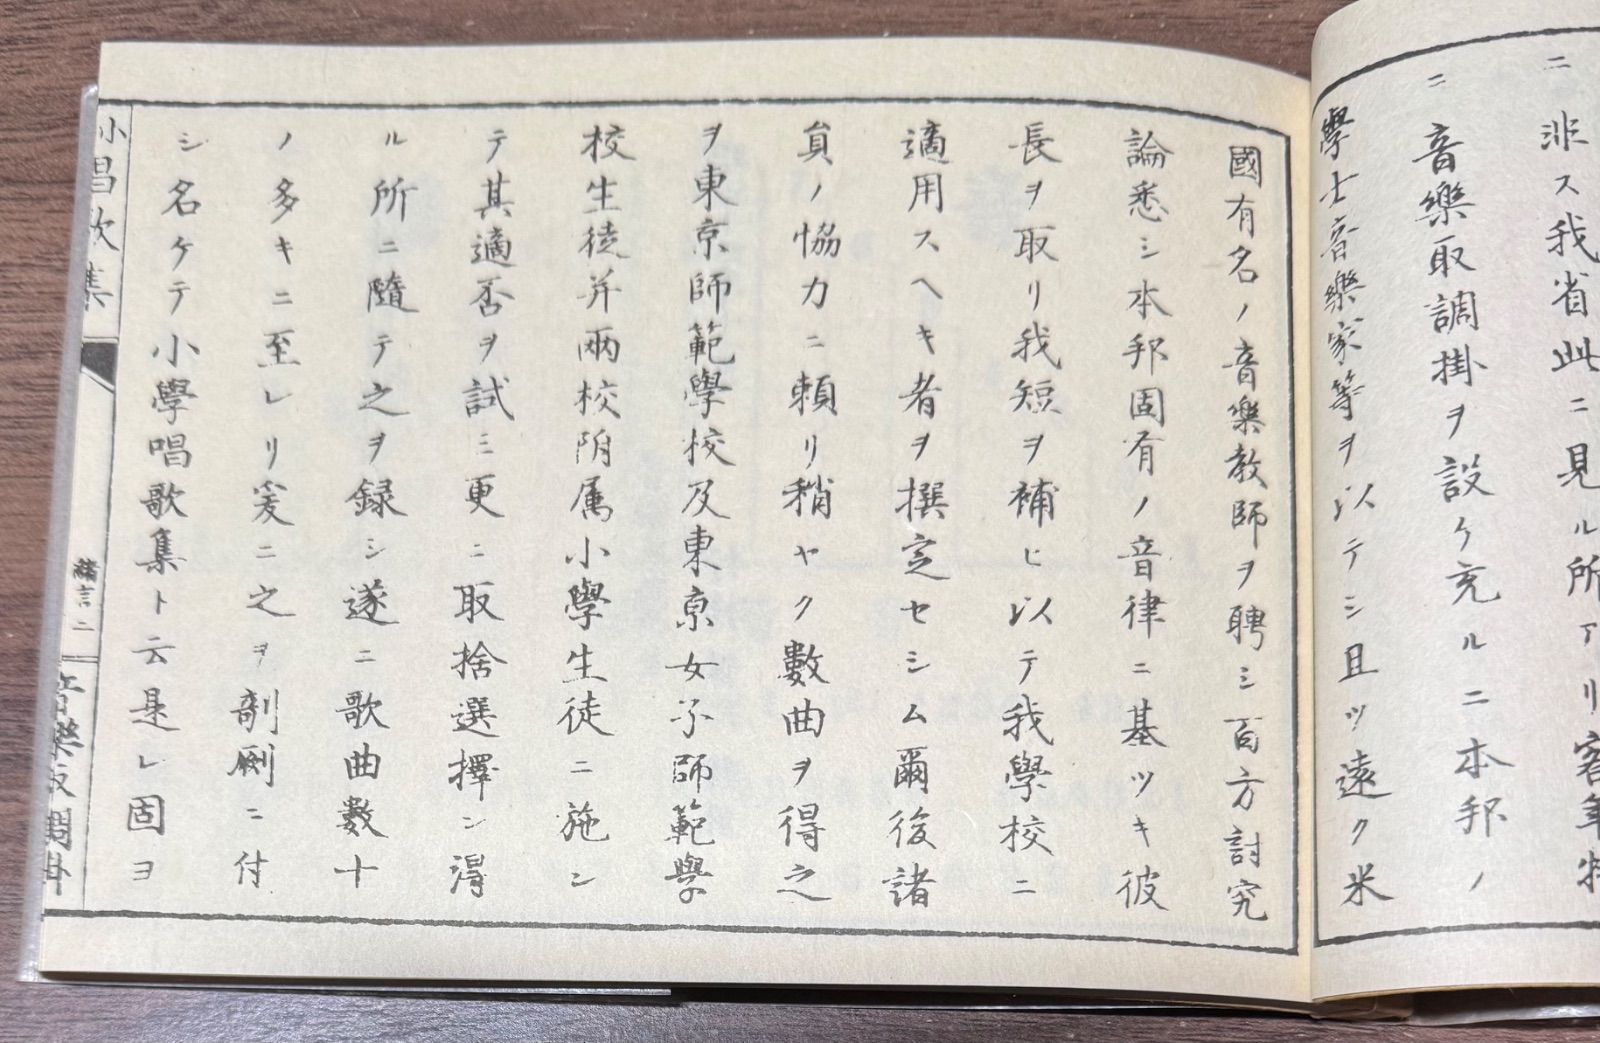 ニ非ス我省此ニ見ル所アリ客年特
ニ音樂取調掛ヲ設ケ充ルニ本邦ノ
學士音樂家等ヲ以テシ且ツ遠ク米
國有名ノ音樂教師ヲ聘シ百方討究
論悉シ本邦固有ノ音律ニ基ツキ彼
長ヲ取リ我短ヲ補ヒ以テ我學校ニ
適用スヘキ者ヲ撰定セシム爾後諸
員ノ恊力ニ頼リ稍ヤク數曲ヲ得之
ヲ東京師範學校及東京女子師範學
校生徒并兩校附属小學生徒ニ施シ
テ其適否ヲ試ミ更ニ取捨選擇シ得
ル所ニ隨テ之ヲ録シ遂ニ歌曲數十
ノ多キニ至レリ爰ニ之ヲ剞劂ニ付
シ名ケテ小學唱歌集ト云是レ固ヨ
小唱歌集
緒言二
音樂取調掛